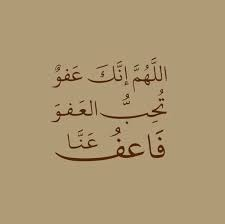 اللَّهُمَّ إِنَّكَ عَفوٌ
تُحِبُّ العَفوَ
فَاعفُ عَنَّا